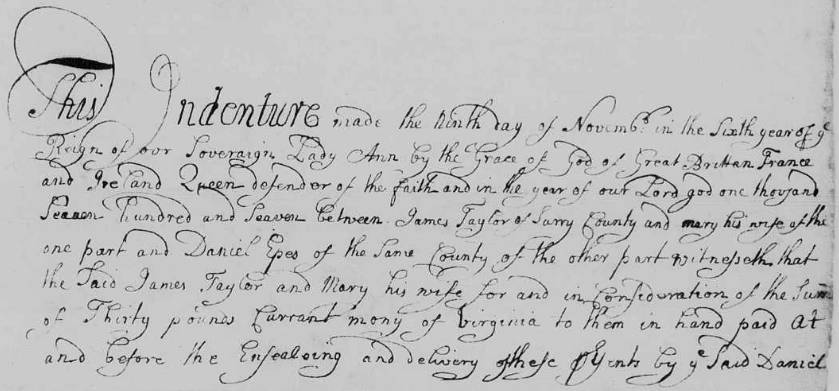 This Indenture made the ninth day of Novemb.r in the Sixth year of ye
Reign of our Soveraign Lady Ann by the Grace of God of Great Brittan France
and Ireland Queen defender of the faith and in the year of our Lord god one thousand
Seaven hundred and Seaven between James Taylor of Surry County and mary his wife of the
one part and Daniel Epes of the Same County of the other part witnesseth that
the Said James Taylor and Mary his wife for and in Consideration of the Sum
of Thirty pounds Currant mony of Virginia to them in hand paid at
and before the Ensealeing and delivery of these psents by ye Said Daniel